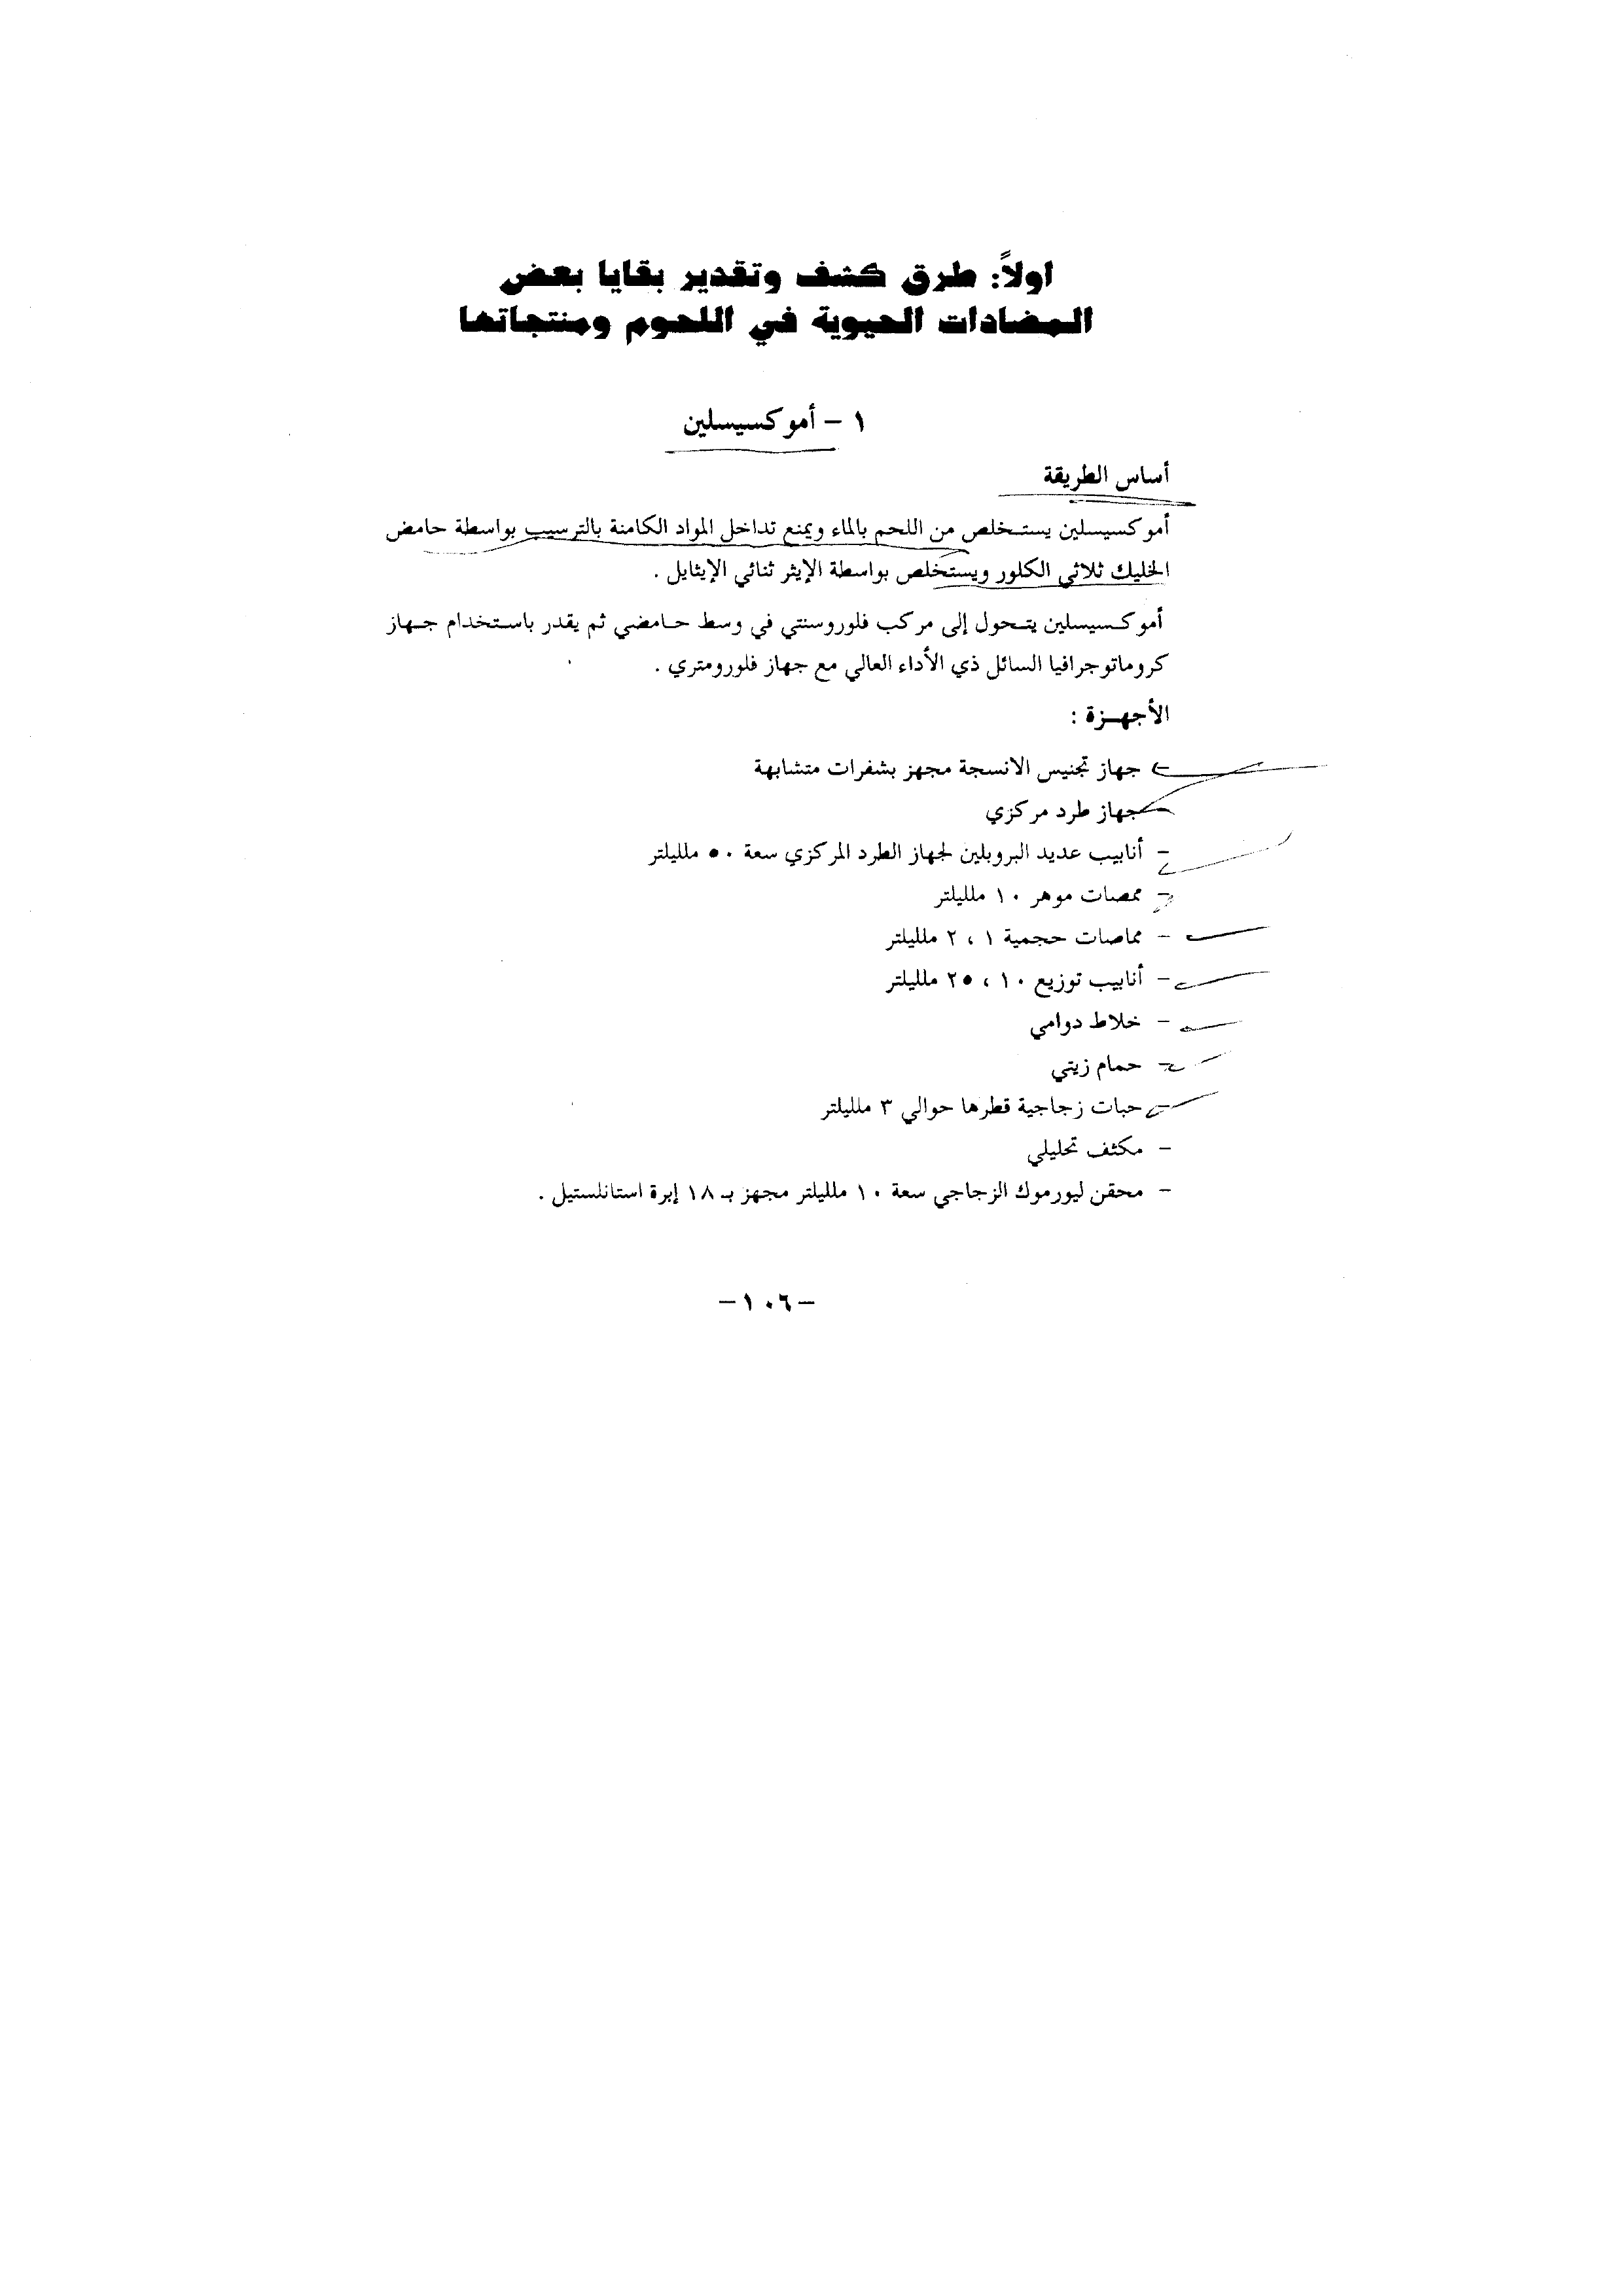 اولاً: طرق كشف وتقدير بقايا بعض
المضادات الحيوية في اللحوم ومنتجاتها
١ - أموكسيسلين
أساس الطريقة
أموكسيسلين يستخلص من اللحم بالماء ويمنع تداخل المواد الكامنة بالترسيب بواسطة حامض
الخليك ثلاثي الكلور ويستخلص بواسطة الإيثر ثنائي الإيثايل .
أموكسيسلين يتحول إلى مركب فلوروسنتي في وسط حامضي ثم يقدر باستخدام جهاز
كروماتوجرافيا السائل ذي الأداء العالي مع جهاز فلورومتري .
الأجهزة :
- جهاز تجنيس الانسجة مجهز بشفرات متشابهة
- جهاز طرد مركزي
- أنابيب عديد البروبلين لجهاز الطرد المركزي سعة ٥٠ ملليلتر
- ممصات موهر ١٠ ملليلتر
- مماصات حجمية ١ ، ٢ ملليلتر
- أنابيب توزيع ١٠ ، ٢٥ ملليلتر
- خلاط دوامي
- حمام زيتي
- حبات زجاجية قطرها حوالي ٣ ملليلتر
- مكثف تحليلي
- محقن ليورموك الزجاجي سعة ١٠ ملليلتر مجهز بـ ١٨ إبرة استانلستيل .
-١٠٦-